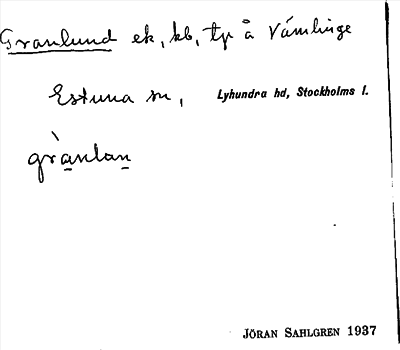 Granlund ek, kb, tp å Vämlinge
Estuna sn, Lyhundra hd, Stockholms l.
grànlan
JÖRAN SAHLGREN 1937